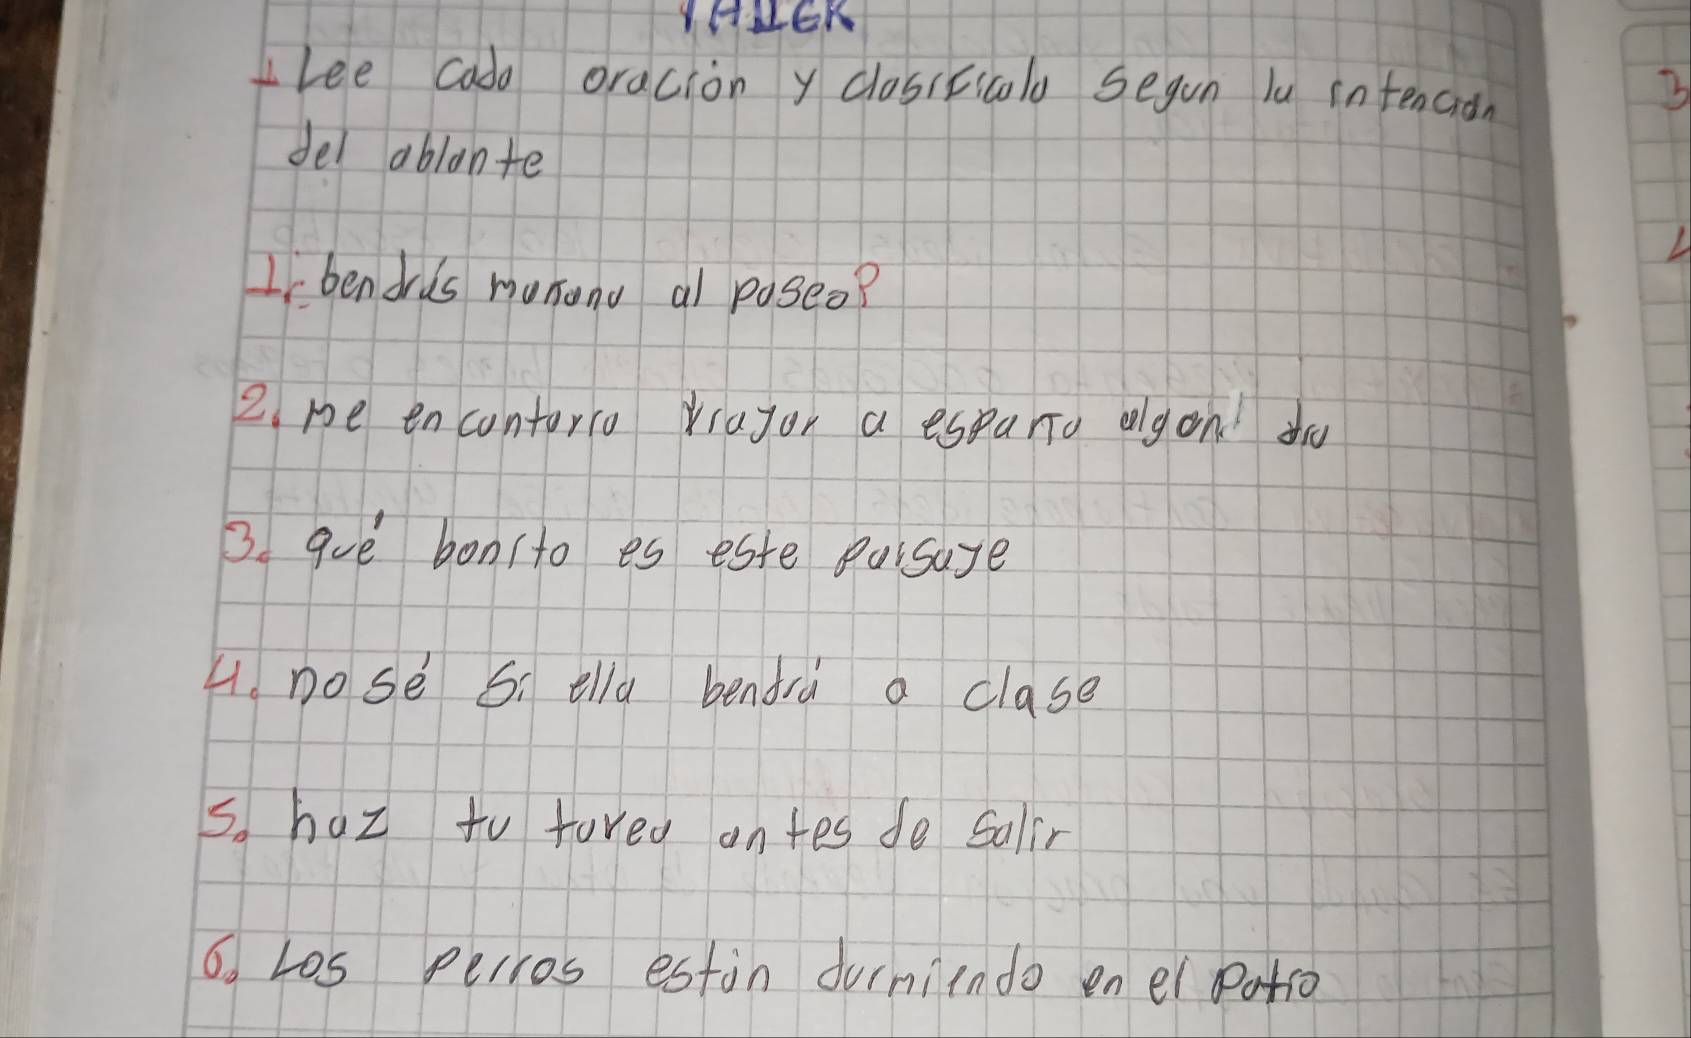 TALLER
1 Lee cada oración y clasificala segun la intención
del ablante
1. bendrás mañana al paseo?
2. me encantaria viajar a españa algon dia
3. qué bonito es este paisaje
4. no sé si ella bendrá a clase
5. haz tu tarea antes de salir
6. Los perros están durmiendo en el patio
3